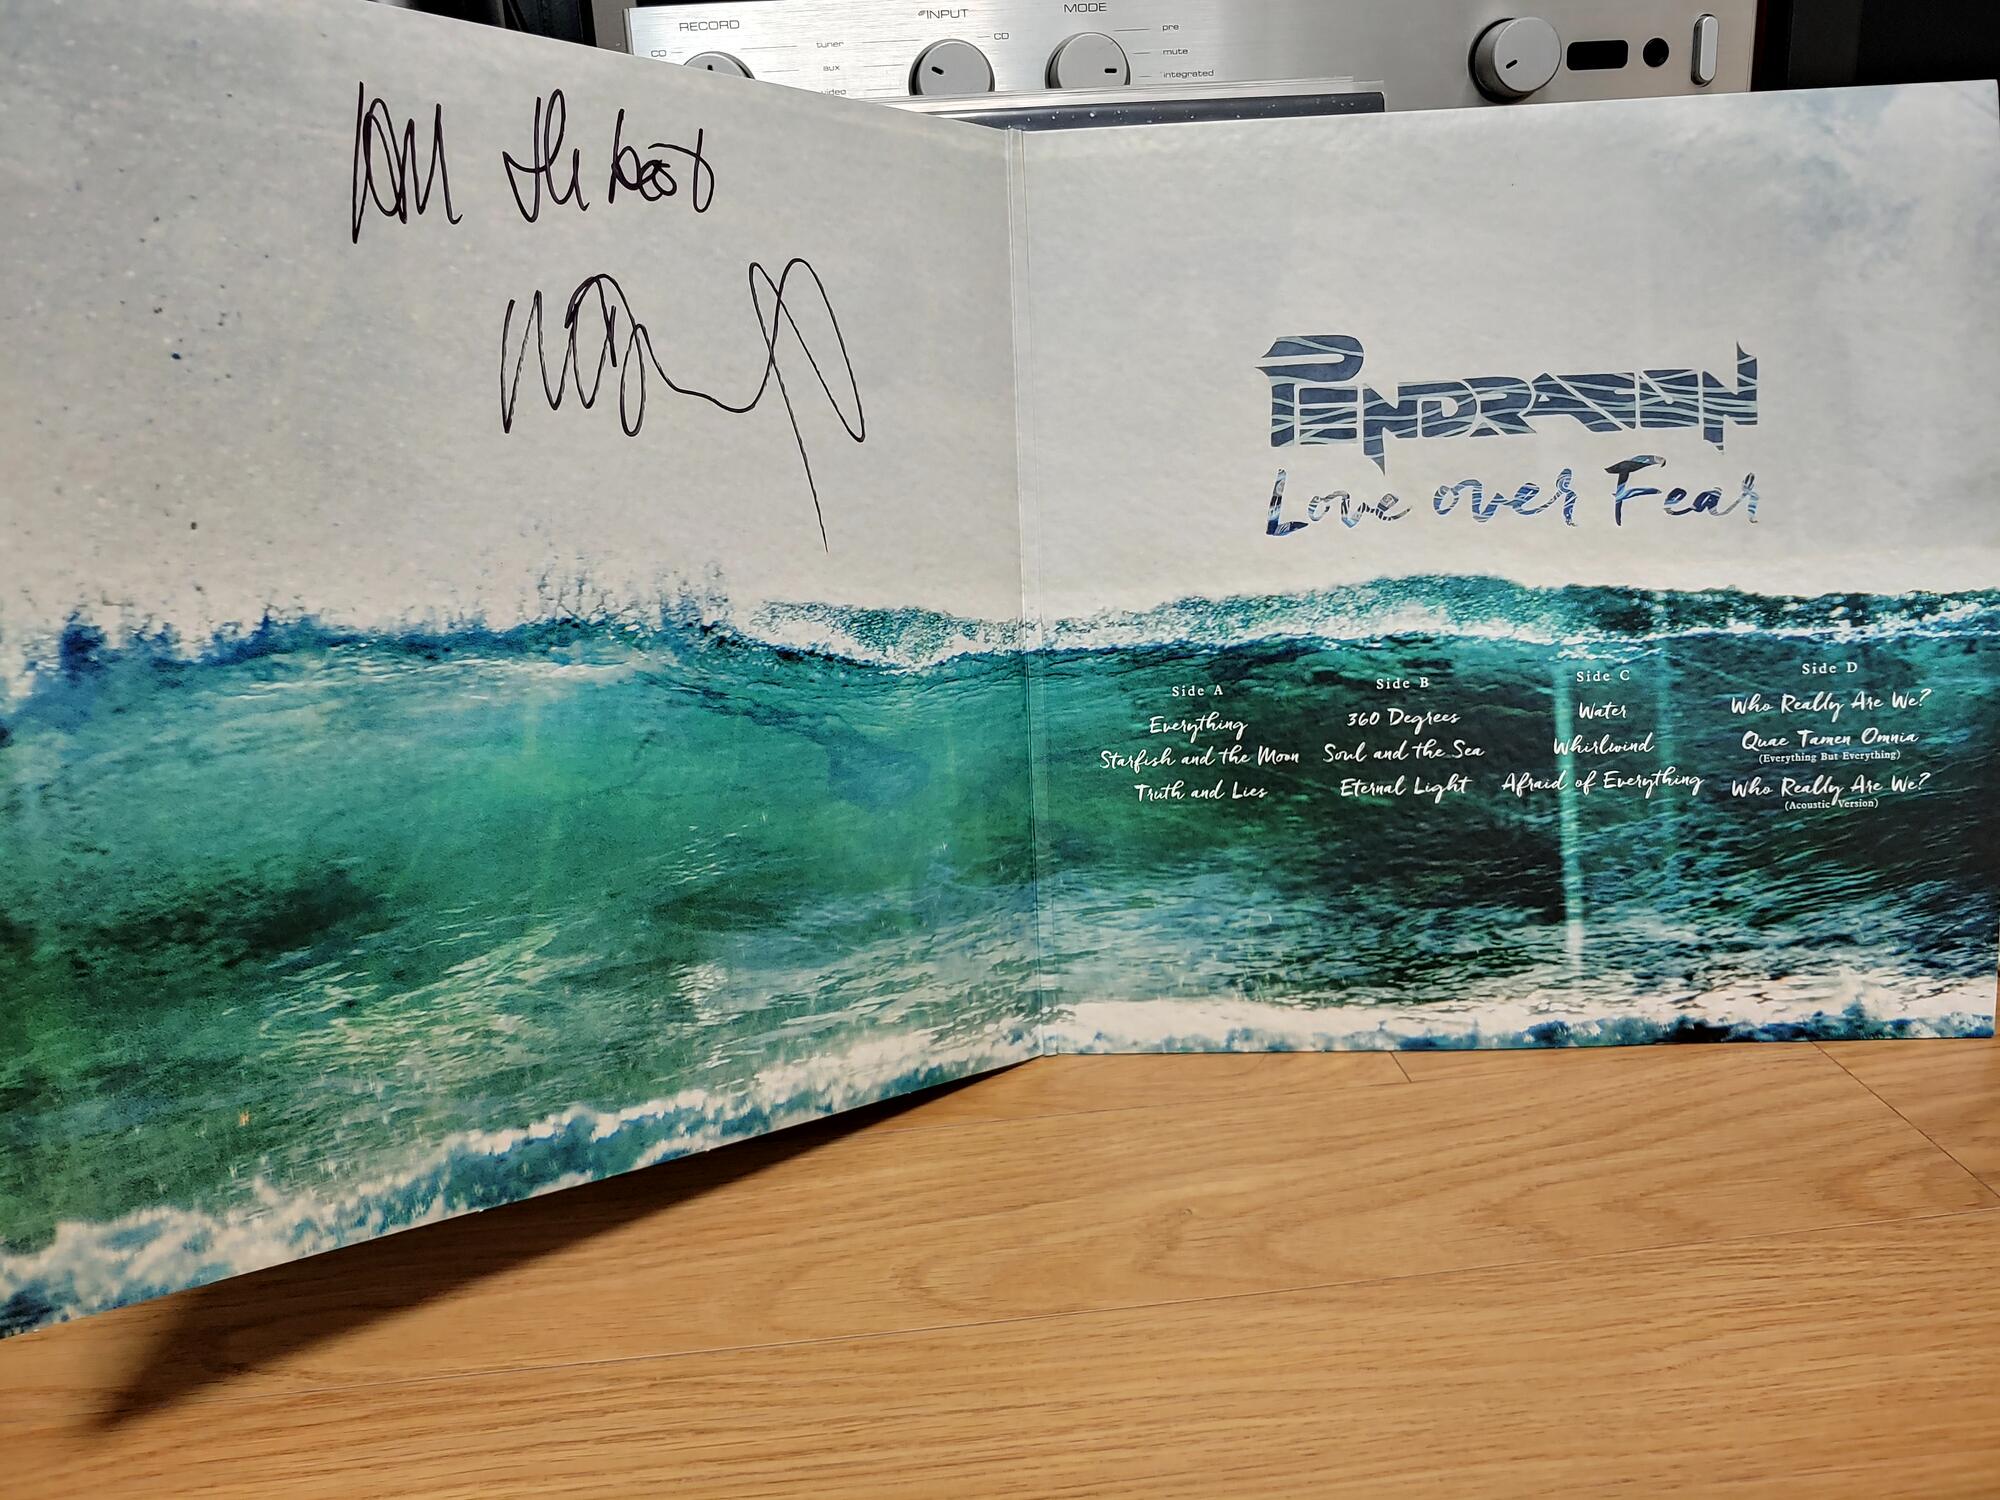 RECORD
CD
tuner
aux
video
INPUT
CD
MODE
pre
mute
integrated
All the best
PENDRAGON
Love over Fear
Side A
Everything
Starfish and the Moon
Truth and Lies
Side B
360 Degrees
Soul and the Sea
Eternal Light
Side C
Water
Whirlwind
Afraid of Everything
Side D
Who Really Are We?
Quae Tamen Omnia
(Everything But Everything)
Who Really Are We?
(Acoustic Version)